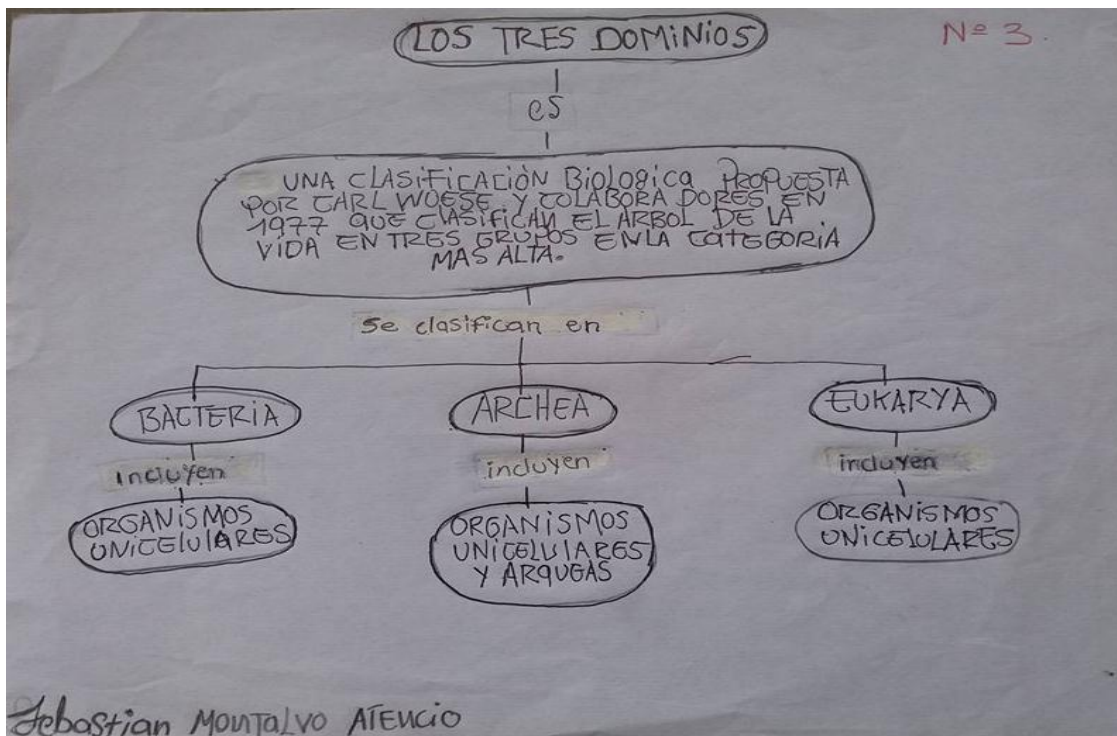 LOS TRES DOMINIOS
Nº 3.
es
UNA CLASIFICACIÓN Biologica PROPUESTA
POR CARL WOESE Y COLABORA DORES EN
1977 QUE CLASIFICAN EL ARBOL DE LA
VIDA EN TRES GRUPOS EN LA CATEGORIA
MAS ALTA.
Se clasifican en
BACTERIA
ARCHEA
EUKARYA
incluyen
incluyen
incluyen
ORGANISMOS
UNICELULARES
ORGANISMOS
UNICELULARES
Y ARQUEAS
ORGANISMOS
UNICELULARES
Sebastian MONTALVO ATENCIO